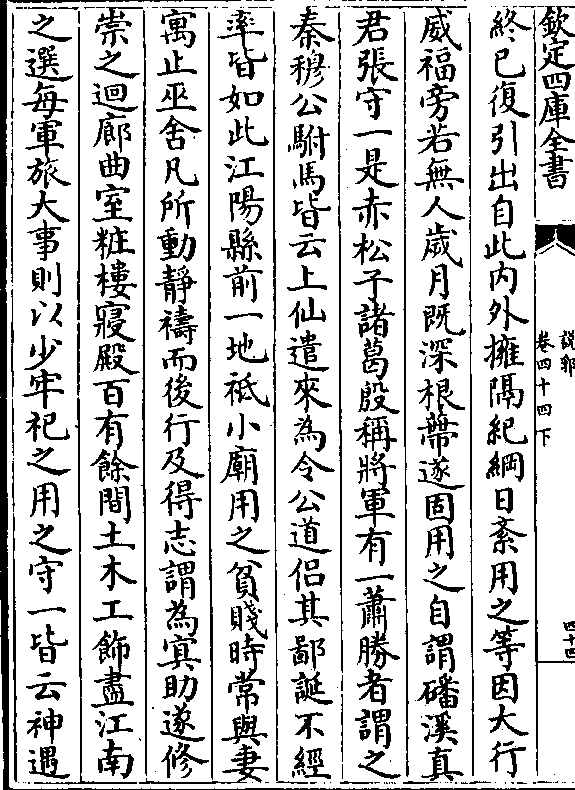 欽定四庫全書
說郛
卷四十四下
四十四
終已復引出自此内外擁隔紀綱日紊用之等因大行
威福旁若無人歲月既深根蔕遂固用之自謂磻溪真
君張守一是赤松子諸葛殷稱將軍有一蕭勝者謂之
秦穆公駙馬皆云上仙遣來為令公道侣其鄙誕不經
率皆如此江陽縣前一地祗小廟用之貧賤時常與妻
寓止巫舍凡所動靜禱而後行及得志謂為冥助遂修
崇之迴廊曲室粧樓寢殿百有餘間土木工飾盡江南
之選每軍旅大事則以少牢祀之用之守一皆云神遇